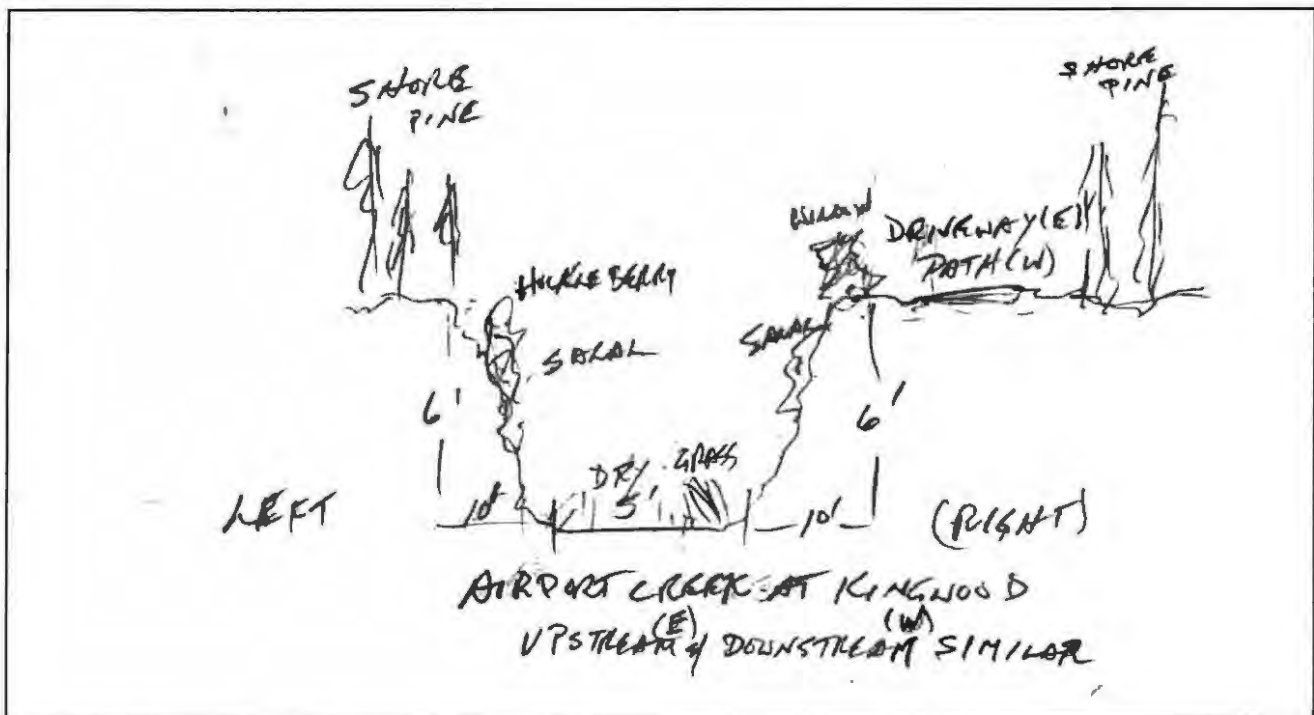 SHORE
PINE
SHORE
PINE
WILLOW
DRIVEWAY (E)
PATH (W)
HUCKLEBERRY
SALAL
SALAL
6'
6'
DRY GRASS
LEFT
10'
5'
10'
(RIGHT)
AIRPORT CREEK AT KINGWOOD
UPSTREAM (E) & DOWNSTREAM (W) SIMILAR